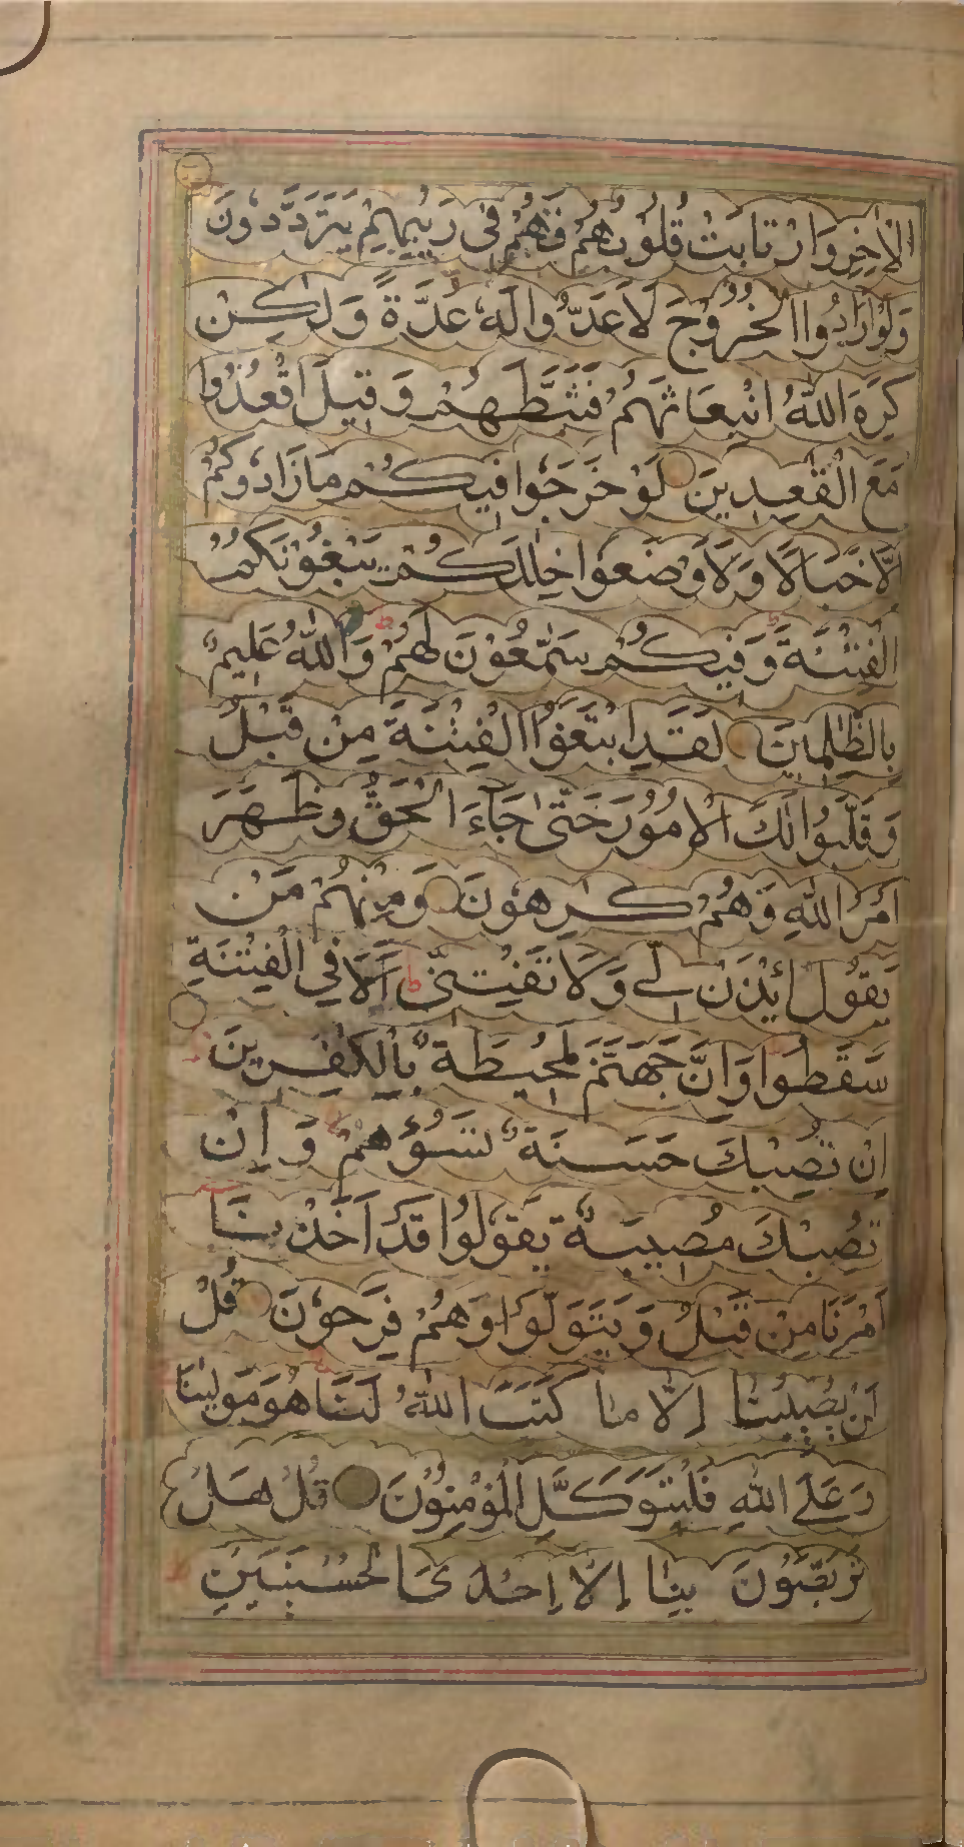 الْاٰخِرِ وَارْتَابَتْ قُلُوْبُهُمْ فَهُمْ فِیْ رَيْبِهِمْ يَتَرَدَّدُوْنَ
وَلَوْ اَرَادُوا الْخُرُوْجَ لَاَعَدُّوْا لَهٗ عُدَّةً وَّلٰكِنْ
كَرِهَ اللّٰهُ انْۢبِعَاثَهُمْ فَثَبَّطَهُمْ وَقِيْلَ اقْعُدُوْا
مَعَ الْقٰعِدِيْنَ لَوْ خَرَجُوْا فِيْكُمْ مَا زَادُوْكُمْ
اِلَّا خَبَالًا وَّلَا۟اَوْضَعُوْا خِلٰلَكُمْ يَبْغُوْنَكُمُ
الْفِتْنَةَ وَفِيْكُمْ سَمّٰعُوْنَ لَهُمْ وَاللّٰهُ عَلِيْمٌ
بِالظّٰلِمِيْنَ لَقَدِ ابْتَغَوُا الْفِتْنَةَ مِنْ قَبْلُ
وَقَلَّبُوْا لَكَ الْاُمُوْرَ حَتّٰى جَآءَ الْحَقُّ وَظَهَرَ
اَمْرُ اللّٰهِ وَهُمْ كٰرِهُوْنَ وَمِنْهُمْ مَنْ
يَقُوْلُ ائْذَنْ لِّيْ وَلَا تَفْتِنِّيْ ط اَلَا فِي الْفِتْنَةِ
سَقَطُوْا وَاِنَّ جَهَنَّمَ لَمُحِيْطَةٌ بِالْكٰفِرِيْنَ
اِنْ تُصِبْكَ حَسَنَةٌ تَسُؤْهُمْ وَاِنْ
تُصِبْكَ مُصِيْبَةٌ يَّقُوْلُوْا قَدْ اَخَذْنَا
اَمْرَنَا مِنْ قَبْلُ وَيَتَوَلَّوْا وَهُمْ فَرِحُوْنَ قُلْ
لَنْ يُّصِيْبَنَا اِلَّا مَا كَتَبَ اللّٰهُ لَنَا هُوَ مَوْلٰىنَا
وَعَلَى اللّٰهِ فَلْيَتَوَكَّلِ الْمُؤْمِنُوْنَ قُلْ هَلْ
تَرَبَّصُوْنَ بِنَا اِلَّا اِحْدَى الْحُسْنَيَيْنِ